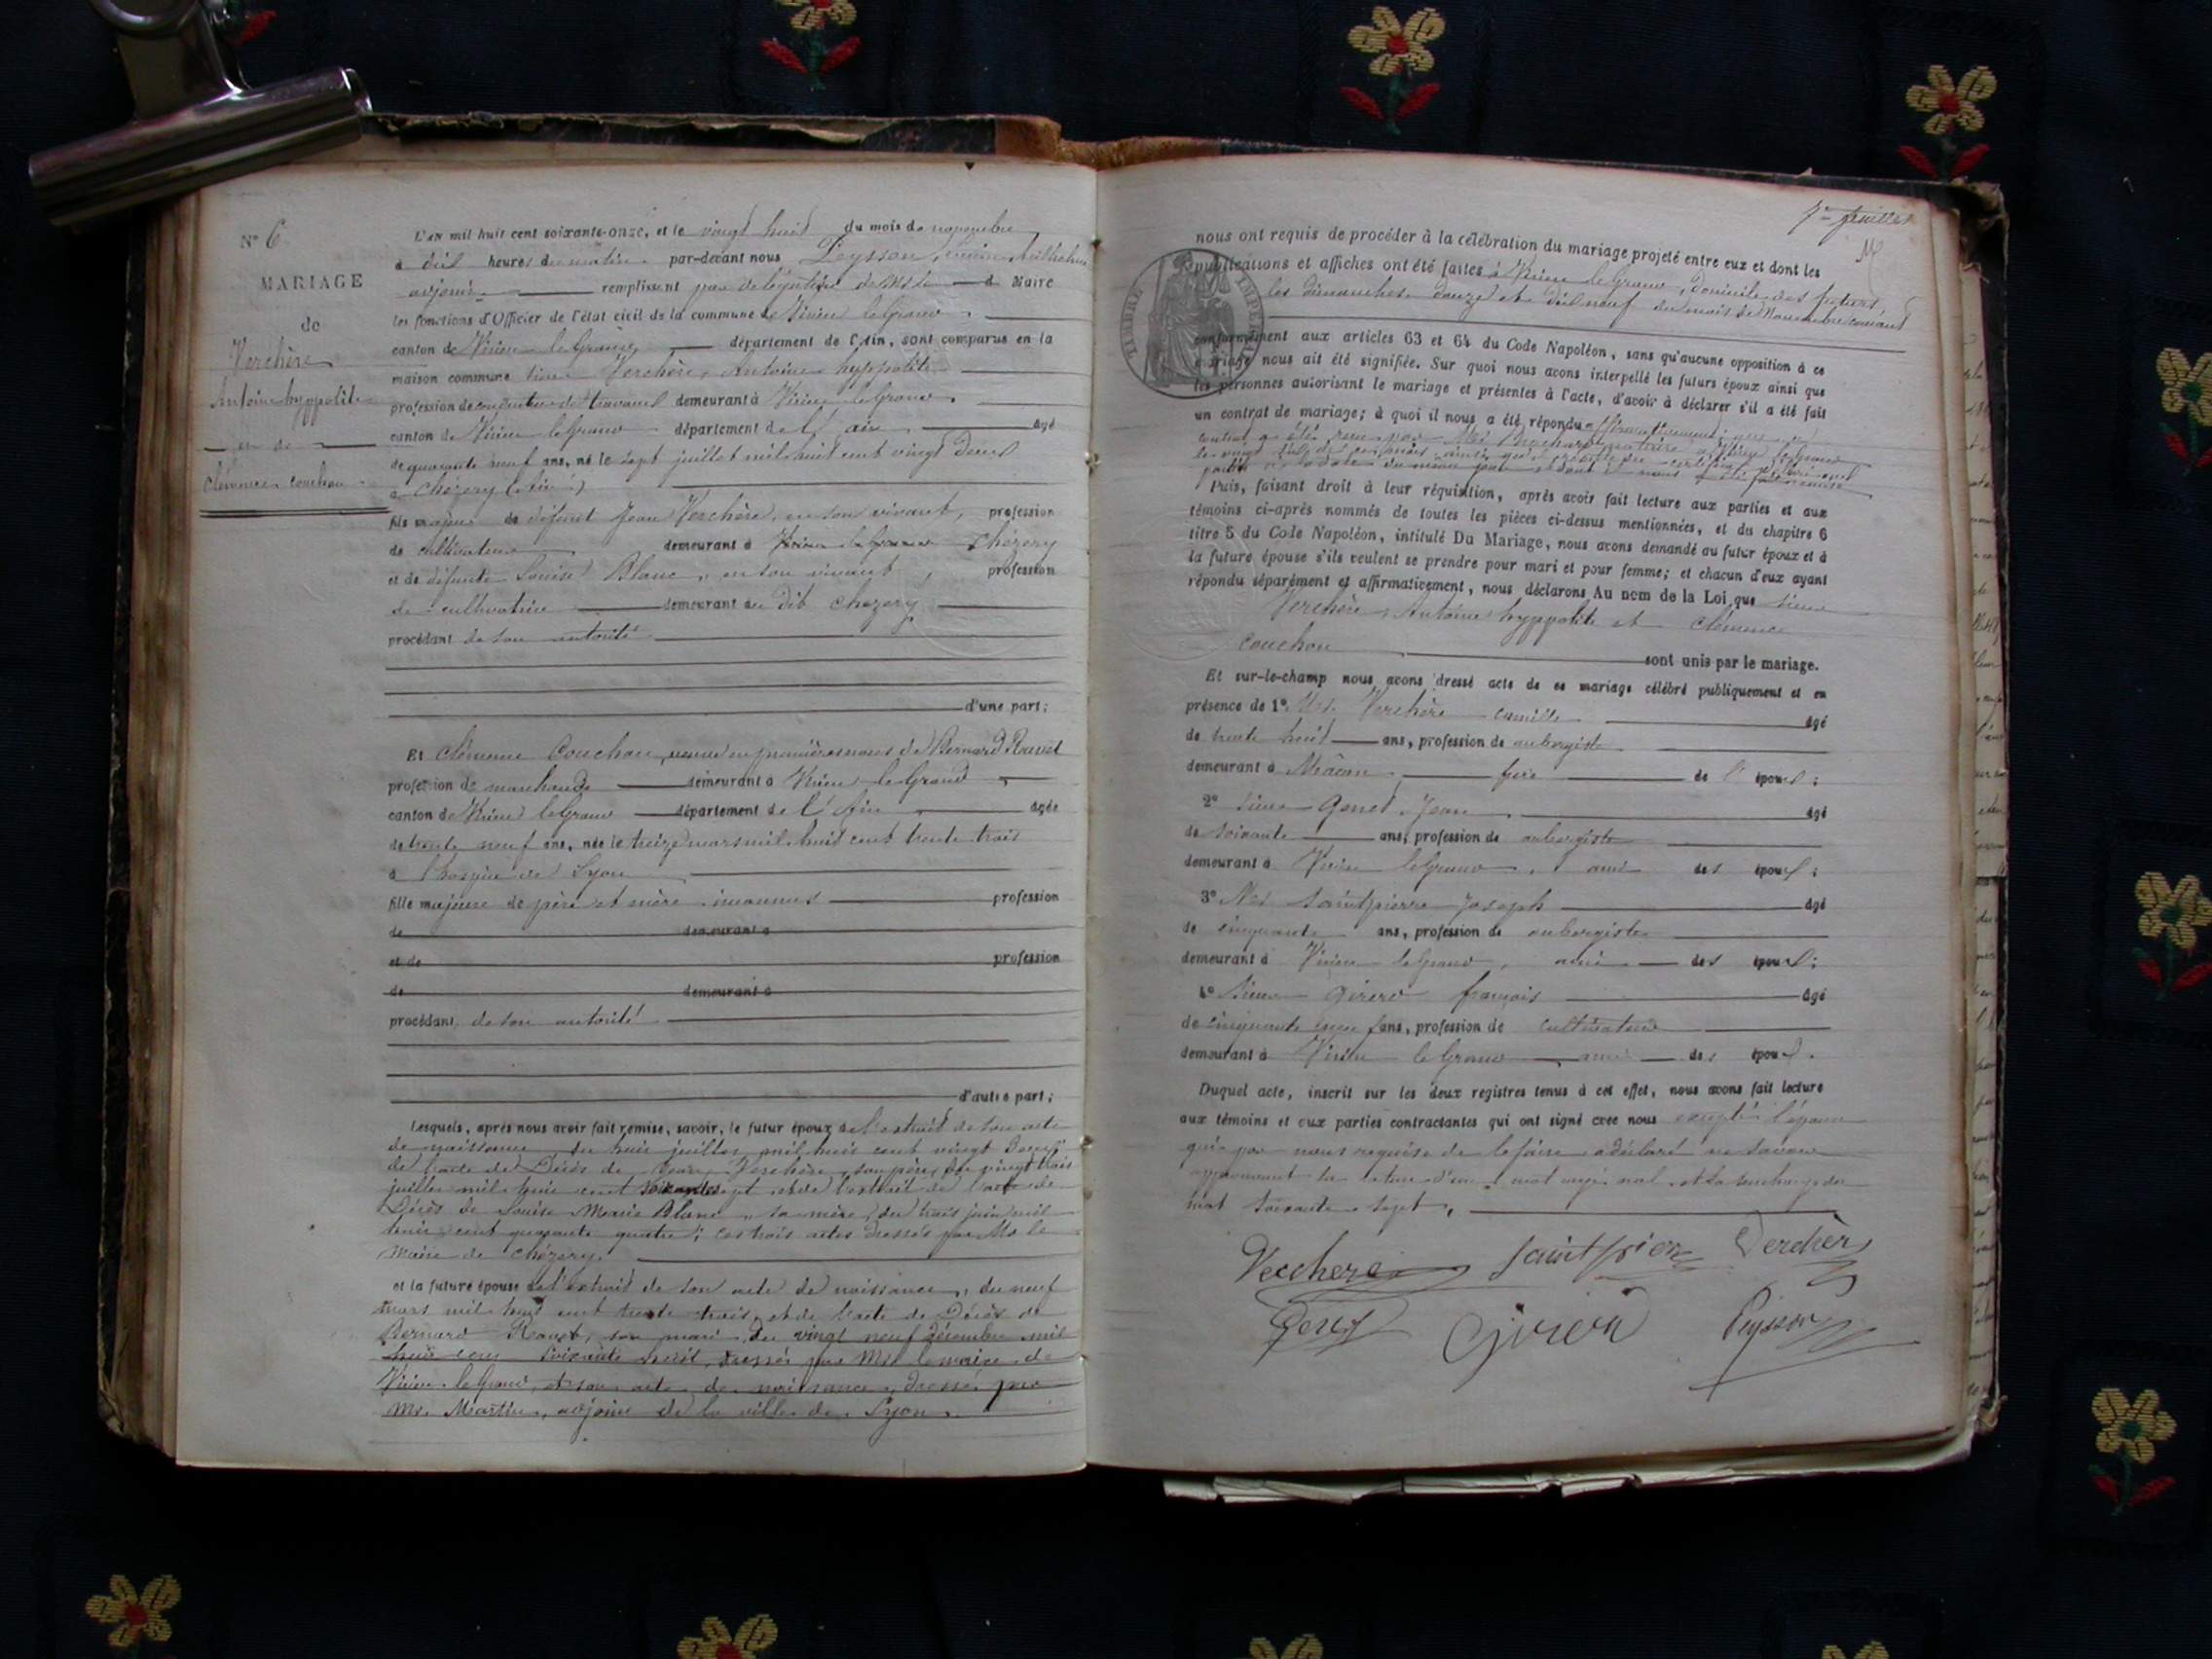 N° 6
MARIAGE
de
Verchère
Antoine hyppolite
et de
Clémence Couchou
L'an mil huit cent soixante-onze, et le vingt huit du mois de novembre
à dix heures du matin par-devant nous Peysson,
adjoint remplissant par délégation de Mr le Maire
les fonctions d'Officier de l'état civil de la commune de Virieu le Grand
canton de Virieu le Grand département de l'Ain, sont comparus en la
maison commune sieur Verchère, Antoine hyppolite
profession de conducteur de travaux demeurant à Virieu le Grand
canton de Virieu le Grand département de l'ain âgé
de quarante neuf ans, né le sept juillet mil huit cent vingt deux
à Chézery (Ain)
fils majeur de défunt Jean Verchère, en son vivant, profession
de cultivateur demeurant à Virieu le Grand Chézery
et de défunte Louise Blanc, en son vivant, profession
de cultivatrice demeurant au dit Chezery
procédant de son autorité
d'une part;
Et Clémence Couchou, veuve en premières noces de Bernard Ravet
profession de marchande demeurant à Virieu le Grand
canton de Virieu le Grand département de l'Ain âgée
de trente neuf ans, née le treize mars mil huit cent trente trois
à l'hospice de Lyon
fille majeure de père et mère inconnus profession
de demeurant à
et de profession
de demeurant à
procédant de son autorité
d'autre part;
Lesquels, après nous avoir fait remise, savoir, le futur époux de l'extrait de son acte
de naissance du huit juillet mil huit cent vingt deux,
de l'acte de Décès de Jean Verchère, son père, du vingt trois
juillet mil huit cent soixante sept et de l'extrait de l'acte de
Décès de Louise Marie Blanc, sa mère, du trois juin mil
huit cent quarante quatre; ces trois actes dressés par Mr le
Maire de Chézery.
et la future épouse de l'extrait de son acte de naissance, du neuf
mars mil huit cent trente trois, et de l'acte de Décès de
Bernard Ravet, son mari, du vingt neuf décembre mil
huit cent soixante huit, dressé par Mr le maire de
Virieu le Grand, et son acte de naissance, dressé par
Mr. Martin, adjoint de la ville de Lyon.
7e feuillet
nous ont requis de procéder à la célébration du mariage projeté entre eux et dont les
publications et affiches ont été faites à Virieu le Grand, domicile des futurs,
les dimanches douze et dix neuf du mois de Novembre courant
TIMBRE IMPERIAL
conformément aux articles 63 et 64 du Code Napoléon, sans qu'aucune opposition à ce
mariage nous ait été signifiée. Sur quoi nous avons interpellé les futurs époux ainsi que
les personnes autorisant le mariage et présentes à l'acte, d'avoir à déclarer s'il a été fait
un contrat de mariage; à quoi il nous a été répondu affirmativement;
contrat a été reçu par Me notaire à Virieu le Grand
Puis, faisant droit à leur réquisition, après avoir fait lecture aux parties et aux
témoins ci-après nommés de toutes les pièces ci-dessus mentionnées, et du chapitre 6
titre 5 du Code Napoléon, intitulé Du Mariage, nous avons demandé au futur époux et à
la future épouse s'ils veulent se prendre pour mari et pour femme; et chacun d'eux ayant
répondu séparément et affirmativement, nous déclarons Au nom de la Loi que sieur
Verchère, Antoine hyppolite et Clémence
Couchou sont unis par le mariage.
Et sur-le-champ nous avons dressé acte de ce mariage célébré publiquement et en
présence de 1° Mr. Verchère camille âgé
de trente huit ans, profession de aubergiste
demeurant à Mâcon, frère de l'époux;
2° sieur Genet Jean âgé
de soixante ans, profession de aubergiste
demeurant à Virieu le Grand, ami des époux;
3° Mr Saintpierre Joseph âgé
de cinquante ans, profession de aubergiste
demeurant à Virieu le Grand, ami des époux;
4° Sieur Girerd françois âgé
de cinquante ans, profession de cultivateur
demeurant à Virieu le Grand ami des époux.
Duquel acte, inscrit sur les deux registres tenus à cet effet, nous avons fait lecture
aux témoins et aux parties contractantes qui ont signé avec nous excepté l'épouse
qui par nous requise de le faire a déclaré ne savoir
approuvant la rature d'un mot nul et la surcharge du
mot soixante sept.
Verchere Saintpierre Verchère
Peysson